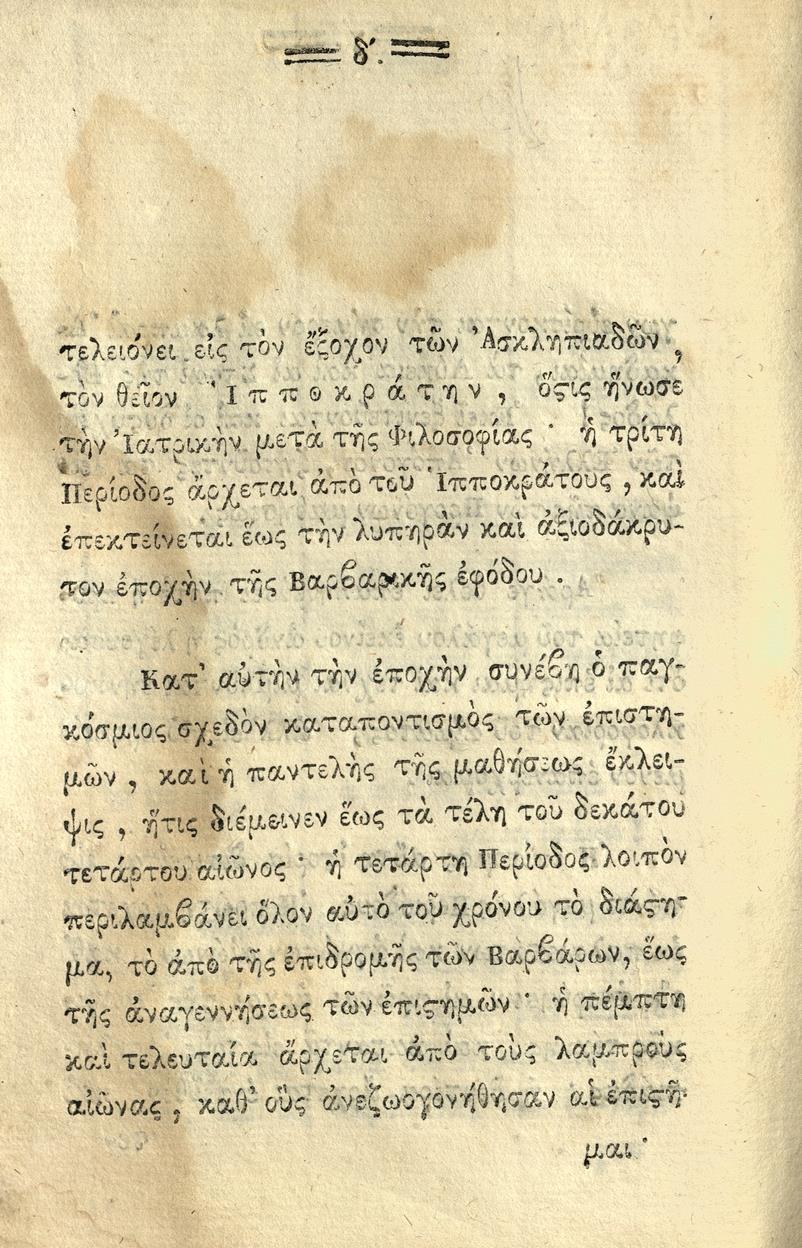 δ′.
τελειόνει εἰς τὸν ἔξοχον τῶν Ἀσκληπιαδῶν,
τὸν θεῖον Ἱπποκράτην, ὅϛις ἥνωσε
τὴν Ἰατρικὴν μετὰ τῆς Φιλοσοφίας · ἡ τρίτη
Περίοδος ἄρχεται ἀπὸ τοῦ Ἱπποκράτους, καὶ
ἐπεκτείνεται ἕως τὴν λυπηρὰν καὶ ἀξιοδάκρυ-
τον ἐποχὴν τῆς Βαρβαρικῆς ἐφόδου.
Κατ' αὐτὴν τὴν ἐποχὴν συνέβη ὁ παγ-
κόσμιος σχεδὸν καταποντισμὸς τῶν ἐπιστη-
μῶν, καὶ ἡ παντελὴς τῆς μαθήσεως ἔκλει-
ψις, ἥτις διέμεινεν ἕως τὰ τέλη τοῦ δεκάτου
τετάρτου αἰῶνος · ἡ τετάρτη Περίοδος λοιπὸν
περιλαμβάνει ὅλον αὐτὸ τοῦ χρόνου τὸ διάϛη-
μα, τὸ ἀπὸ τῆς ἐπιδρομῆς τῶν Βαρβάρων, ἕως
τῆς ἀναγεννήσεως τῶν ἐπιϛημῶν · ἡ πέμπτη
καὶ τελευταία ἄρχεται ἀπὸ τοὺς λαμπροὺς
αἰῶνας, καθ' οὓς ἀνεζωογονήθησαν αἱ ἐπιϛῆ-
μαι ·